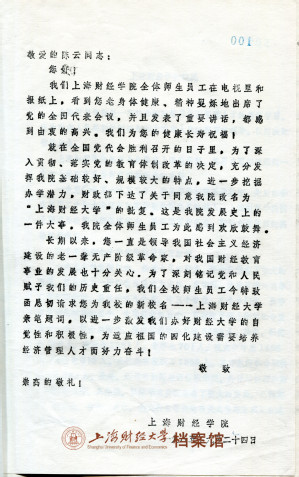 001
敬爱的陈云同志：
您好！
我们上海财经学院全体师生员工在电视里和
报纸上，看到您老身体健康、精神矍烁地出席了
党的全国代表会议，并且发表了重要讲话，都感
到由衷的高兴。我们为您的健康长寿祝福！
就在全国党代会胜利召开的日子里，为了深
入贯彻、落实党的教育体制改革的决定，充分发
挥我院基础较好、规模较大的特点，进一步挖掘
办学潜力，财政部下达了关于同意我院改名为
“上海财经大学”的批复。这是我院发展史上的
一件大事。我院全体师生员工为此感到欢欣鼓舞。
长期以来，您一直是领导我国社会主义经济
建设的老一辈无产阶级革命家，对我国财经教育
事业的发展也十分关心。为了深刻铭记党和人民
赋予我们的历史重任，我们全校师生员工今特致
函恳切请求您为我校的新校名——上海财经大学
亲笔题词，以进一步激发我们办好财经大学的自
觉性和积极性，为适应祖国的四化建设需要培养
经济管理人才而努力奋斗！
敬致
崇高的敬礼！
上海财经学院
二十四日
上海财经大学 档案馆
Shanghai University of Finance and Economics